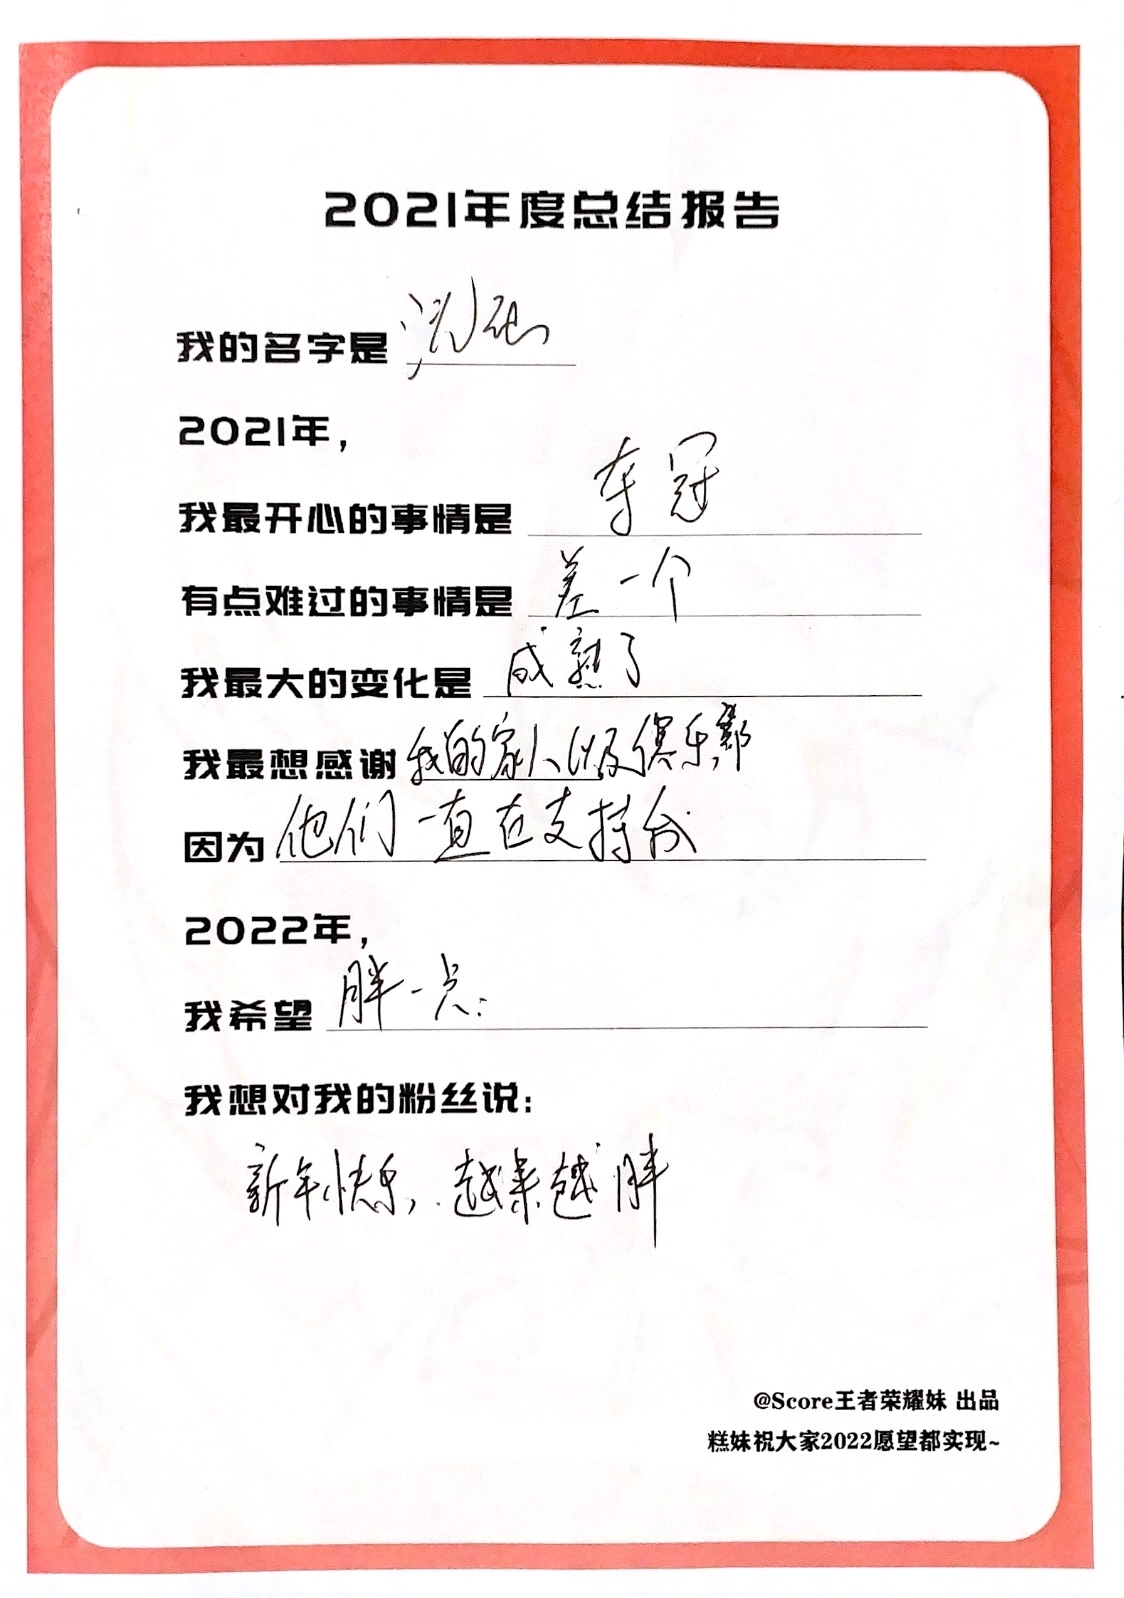 2021年度总结报告
我的名字是
2021年，
我最开心的事情是 夺冠
有点难过的事情是 差一个
我最大的变化是 成熟了
我最想感谢 我的家人以及俱乐部
因为 他们一直在支持我
2022年，
我希望 胖一点
我想对我的粉丝说：
新年快乐，越来越胖
@Score王者荣耀妹 出品
糕妹祝大家2022愿望都实现~